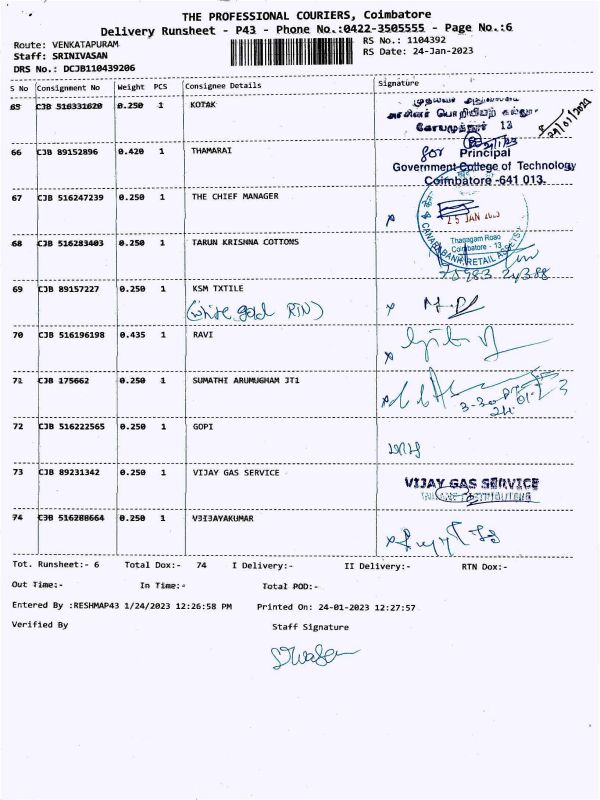 THE PROFESSIONAL COURIERS, Coimbatore
Delivery Runsheet - P43 - Phone No.:0422-3505555 - Page No.:6
Route: VENKATAPURAM
RS No.: 1104392
Staff: SRINIVASAN
RS Date: 24-Jan-2023
DRS No.: DCJB110439206
S No Consignment No Weight PCS Consignee Details Signature
65 CJB 516331620 0.250 1 KOTAK
அரசினர் பொறியியற் கல்லூரி
கோயமுத்தூர் 13
66 CJB 89152896 0.420 1 THAMARAI
for Principal
Government College of Technology
Coimbatore -641 013.
67 CJB 516247239 0.250 1 THE CHIEF MANAGER
25 JAN
CANARA BANK, RETAIL ASSETS
Thadagam Road
Coimbatore - 13
68 CJB 516283403 0.250 1 TARUN KRISHNA COTTONS
69 CJB 89157227 0.250 1 KSM TXTILE
(white gold RTN)
70 CJB 516196198 0.435 1 RAVI
71 CJB 175662 0.250 1 SUMATHI ARUMUGHAM JT1
72 CJB 516222565 0.250 1 GOPI
73 CJB 89231342 0.250 1 VIJAY GAS SERVICE
VIJAY GAS SERVICE
INDANE DISTRIBUTORS
74 CJB 516288664 0.250 1 VJIJAYAKUMAR
Tot. Runsheet:- 6 Total Dox:- 74 I Delivery:- II Delivery:- RTN Dox:-
Out Time:- In Time:- Total POD:-
Entered By :RESHMAP43 1/24/2023 12:26:58 PM Printed On: 24-01-2023 12:27:57
Verified By Staff Signature